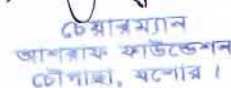 চেয়ারম্যান
আশরাফ ফাউন্ডেশন
চৌগাছা, যশোর ।